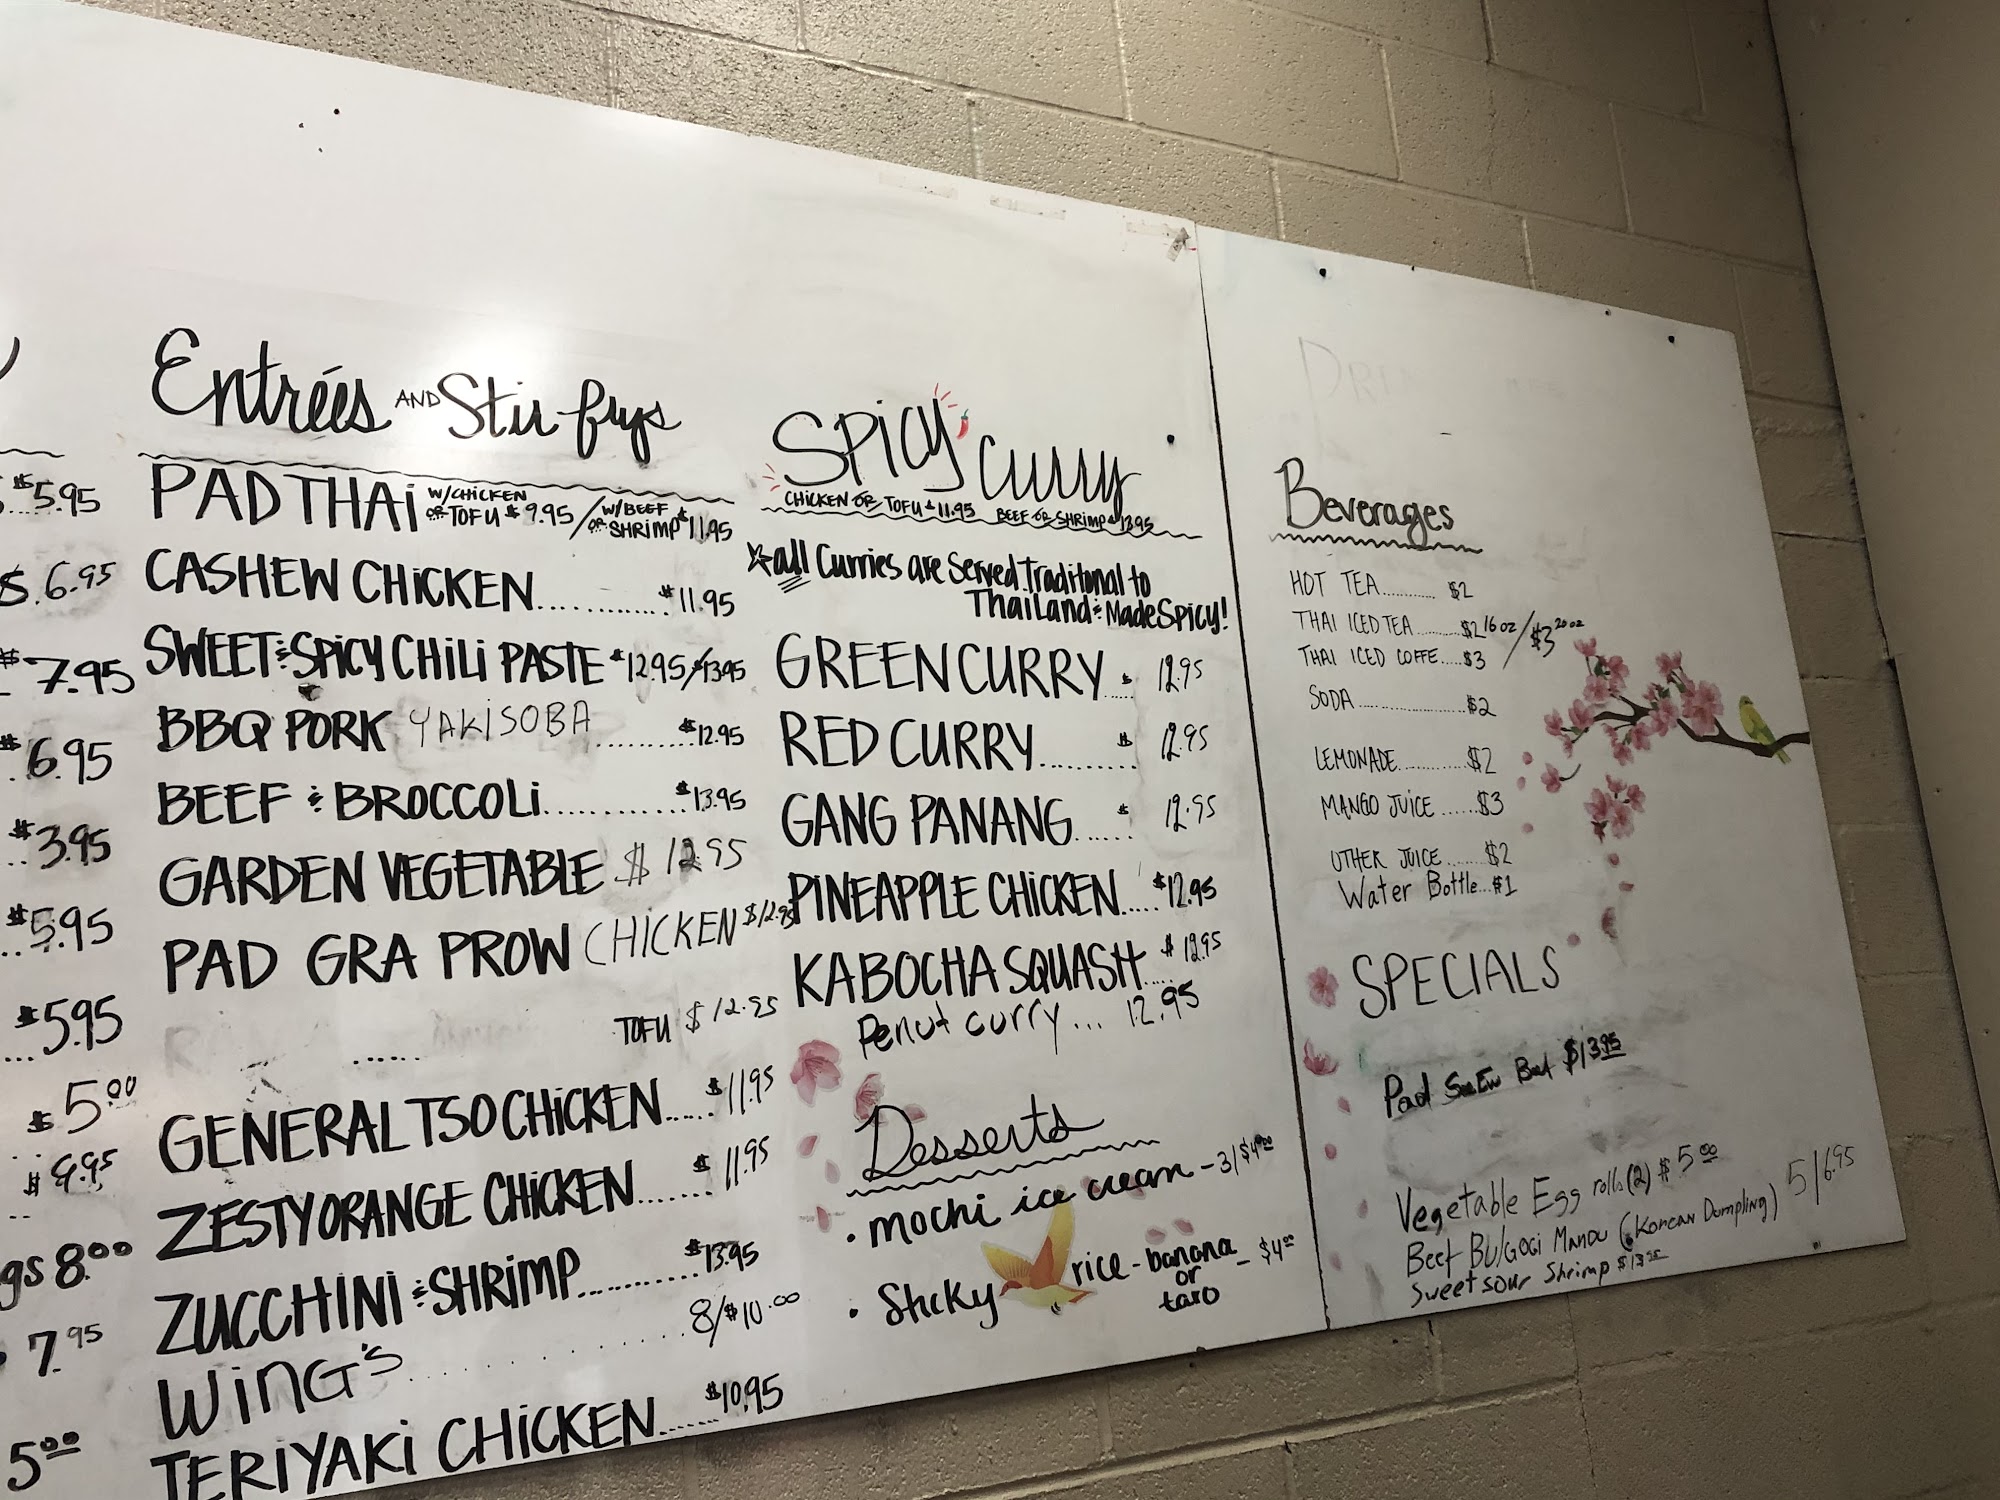 $5.95
$.6.95
$7.95
$6.95
$3.95
$5.95
$5.95
$5.00
$9.95
gs 8.00
7.95
5.00
Entrées AND Stir-frys
PAD THAI W/CHICKEN OR TOFU $9.95 / W/BEEF OR SHRIMP $11.95
CASHEW CHICKEN............$11.95
SWEET & SPICY CHILI PASTE $12.95/$13.95
BBQ PORK YAKISOBA.........$12.95
BEEF & BROCCOLI............$13.95
GARDEN VEGETABLE $12.95
PAD GRA PROW CHICKEN $12.95
...... TOFU $12.95
GENERAL TSO CHICKEN.....$11.95
ZESTY ORANGE CHICKEN.......$11.95
ZUCCHINI & SHRIMP..........$13.95
WING'S............8/$10.00
TERIYAKI CHICKEN.....$10.95
SPICY Curry
CHICKEN OR TOFU $11.95 BEEF OR SHRIMP $13.95
all Curries are Served Traditional to
Thailand & Made Spicy!
GREEN CURRY....$12.95
RED CURRY.........$12.95
GANG PANANG......$12.95
PINEAPPLE CHICKEN.....$12.95
KABOCHA SQUASH....$12.95
Penut curry... 12.95
Desserts
• mochi ice cream - 3/$4.00
• Sticky rice - banana or taro - $4.00
Beverages
HOT TEA.......... $2
THAI ICED TEA........$2 16oz/$3 20oz
THAI ICED COFFE....$3
SODA...................$2
LEMONADE.............$2
MANGO JUICE......$3
OTHER JUICE.......$2
Water Bottle...$1
SPECIALS
Pad See Ew Beef $13.95
Vegetable Egg rolls (2) $5.00
Beef BUlGOGI MANDU (Korean Dumpling) 5/6.95
Sweet sour Shrimp $13.95